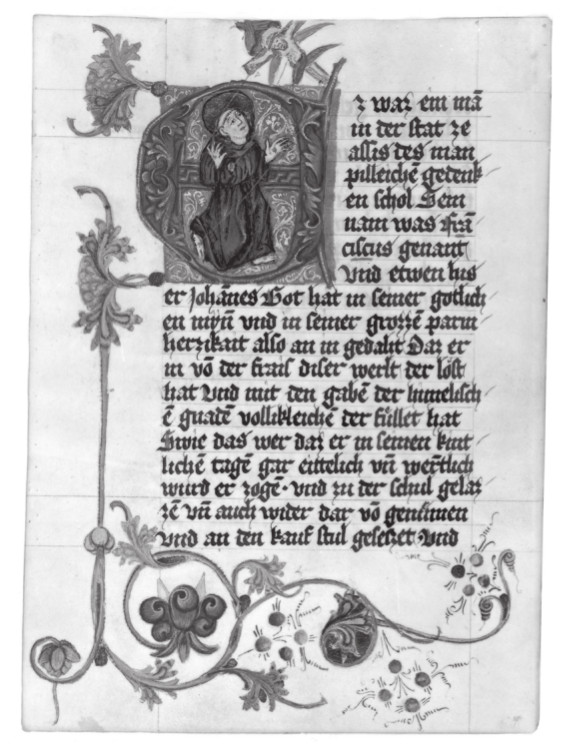 Ez waz ein mā
in der stat ze
assis des man
pilleichē gedenk
en schol Sein
nam was frā
ciscus genant
Vnd etwen his
er Johānes Got hat in seiner gotlich
en mỹn vnd in seiner grozzē parm
herzikait also an in gedaht Daz er
in vō der frais diser werlt der löst
hat Vnd mit den gabē der himelisch
ē gnadē vollikleichē der füllet hat
Swie das wer daz er in seinen kint
lichē tagē gar eittelich vn̄ wertlich
wurd er zogē · vnd zu der schul gelaz
zē vn̄ auch wider dar vō genumen
Vnd an den kauf stul gesetzet Vnd